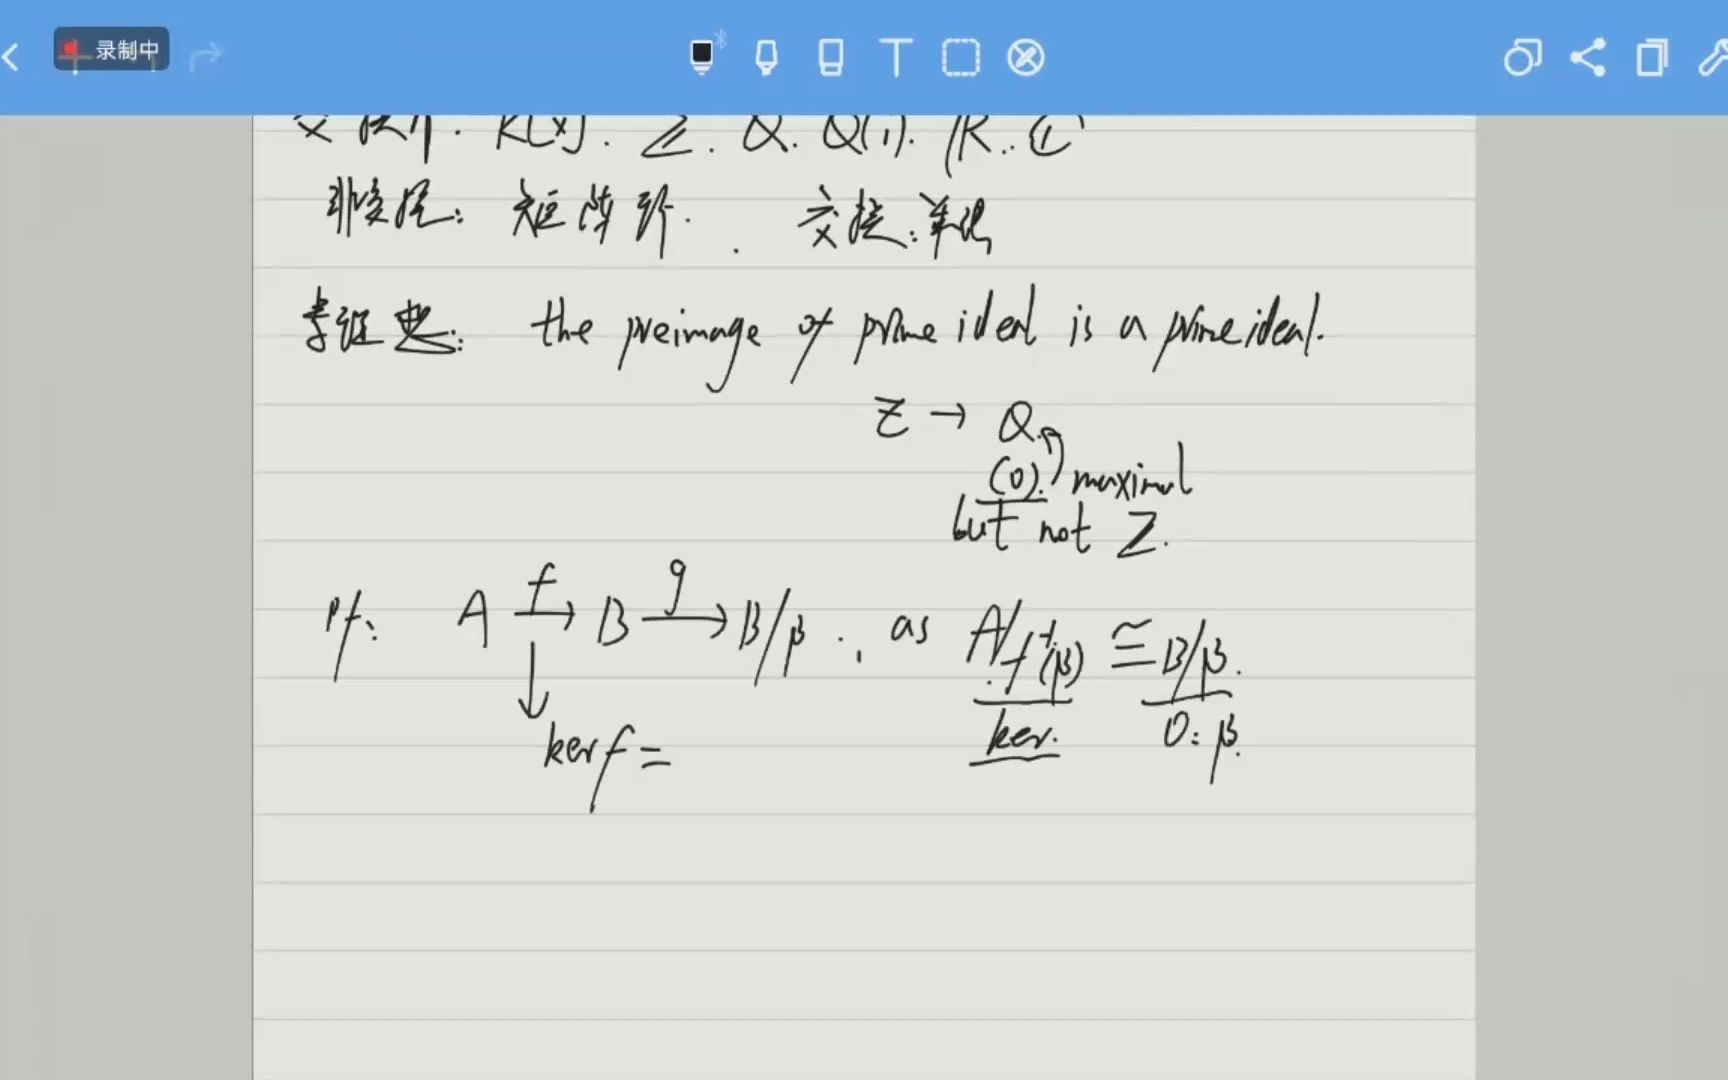 录制中
K[x]. Z. Q. Q(i). R.. C
非交换: 矩阵环. 交换:
the preimage of prime ideal is a prime ideal.
Z → Q.
(0). maximal
but not Z.
pf: A f→ B g→ B/β ., as A/f⁻¹(β) ≅ B/β.
ker f = ker. 0: β.